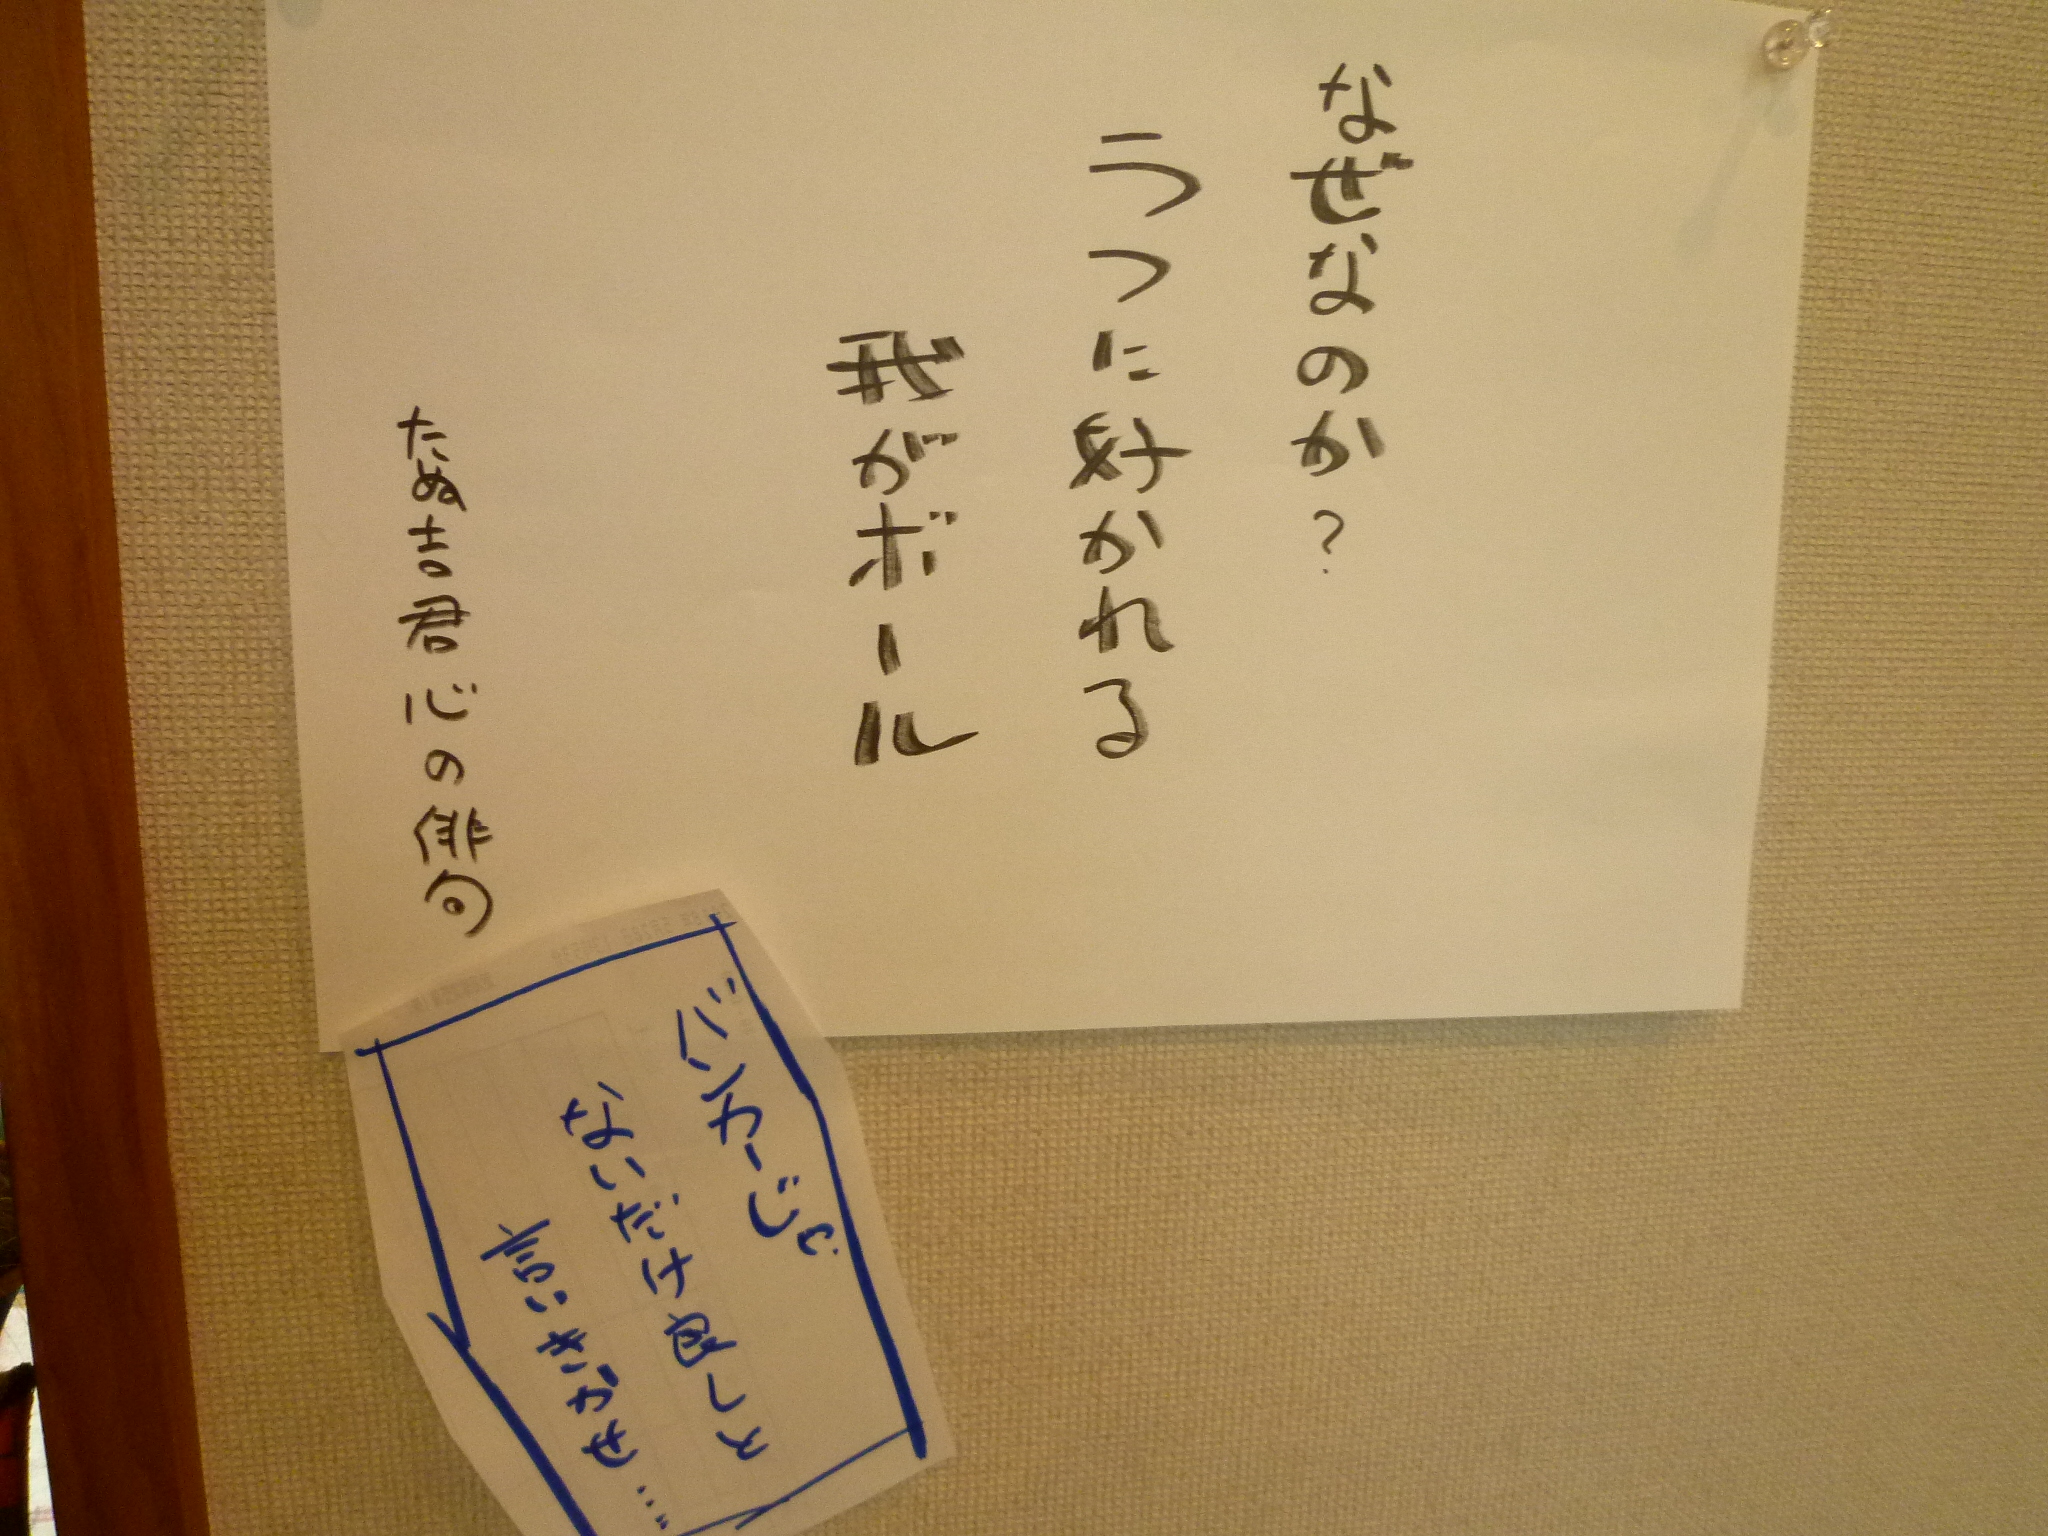 なぜなのか？
ラフに好かれる
我がボール
たぬ吉君心の俳句
バンカーじゃ
ないだけ良しと
言いきかせ…